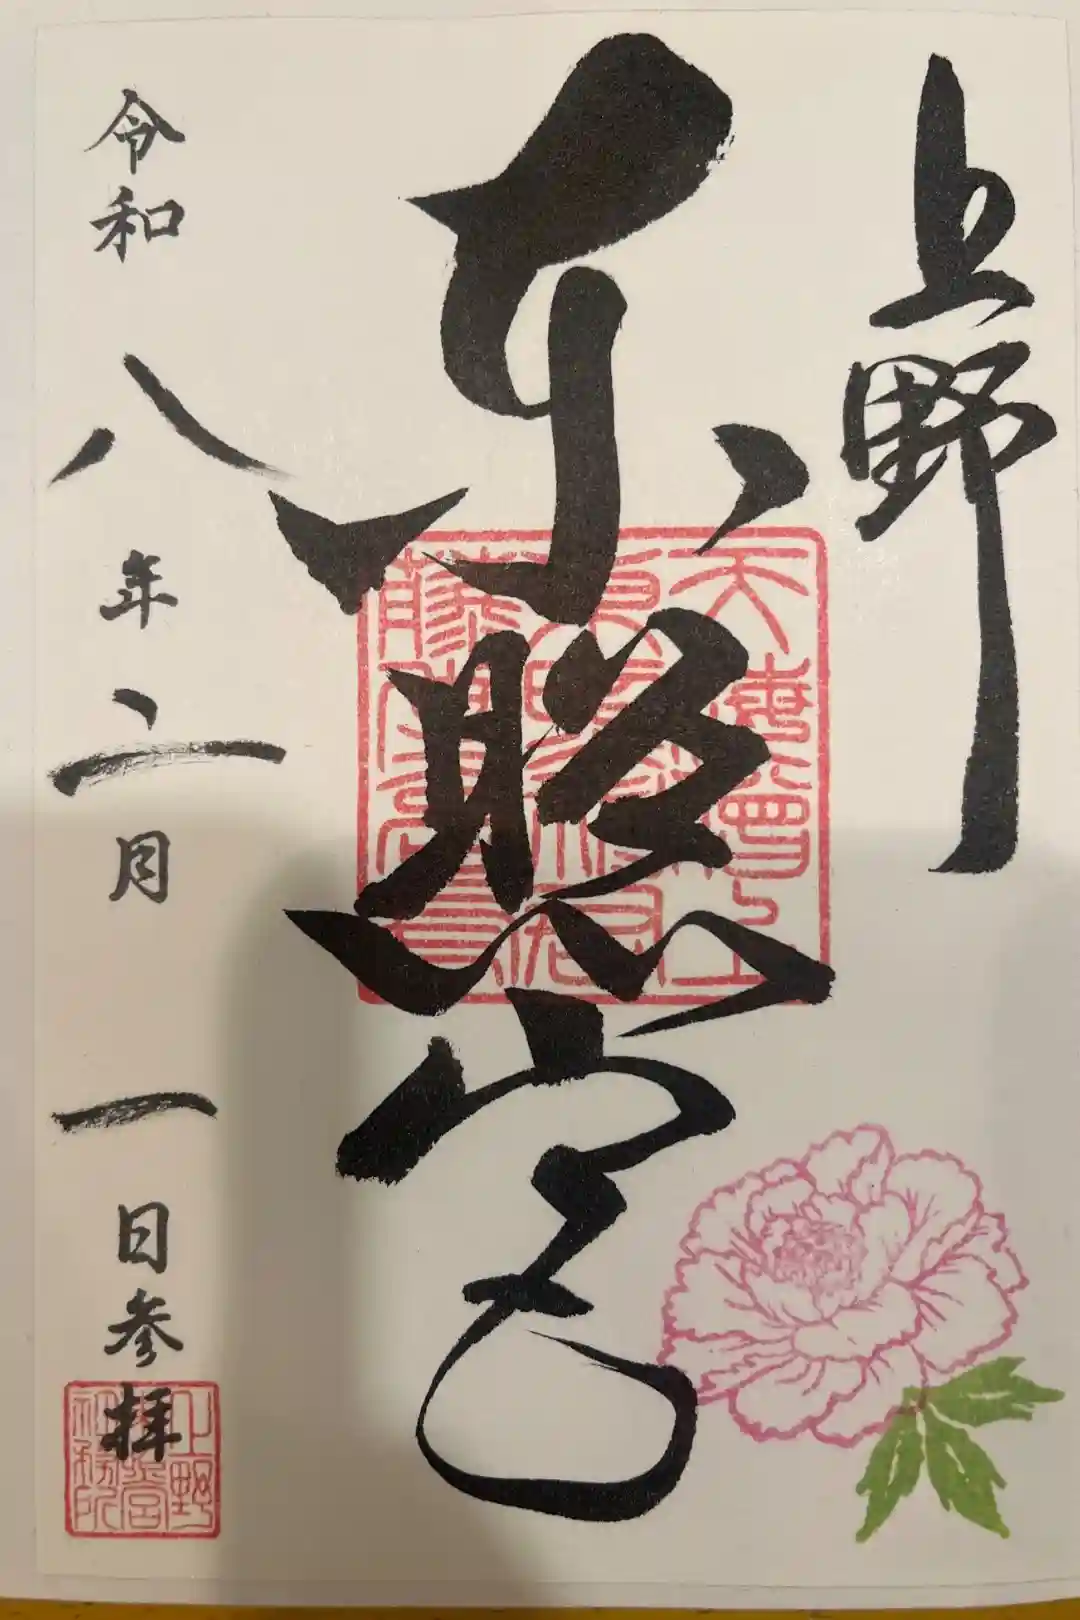 上野
東照宮
令和八年二月一日参拝
上野
東照宮
社務所